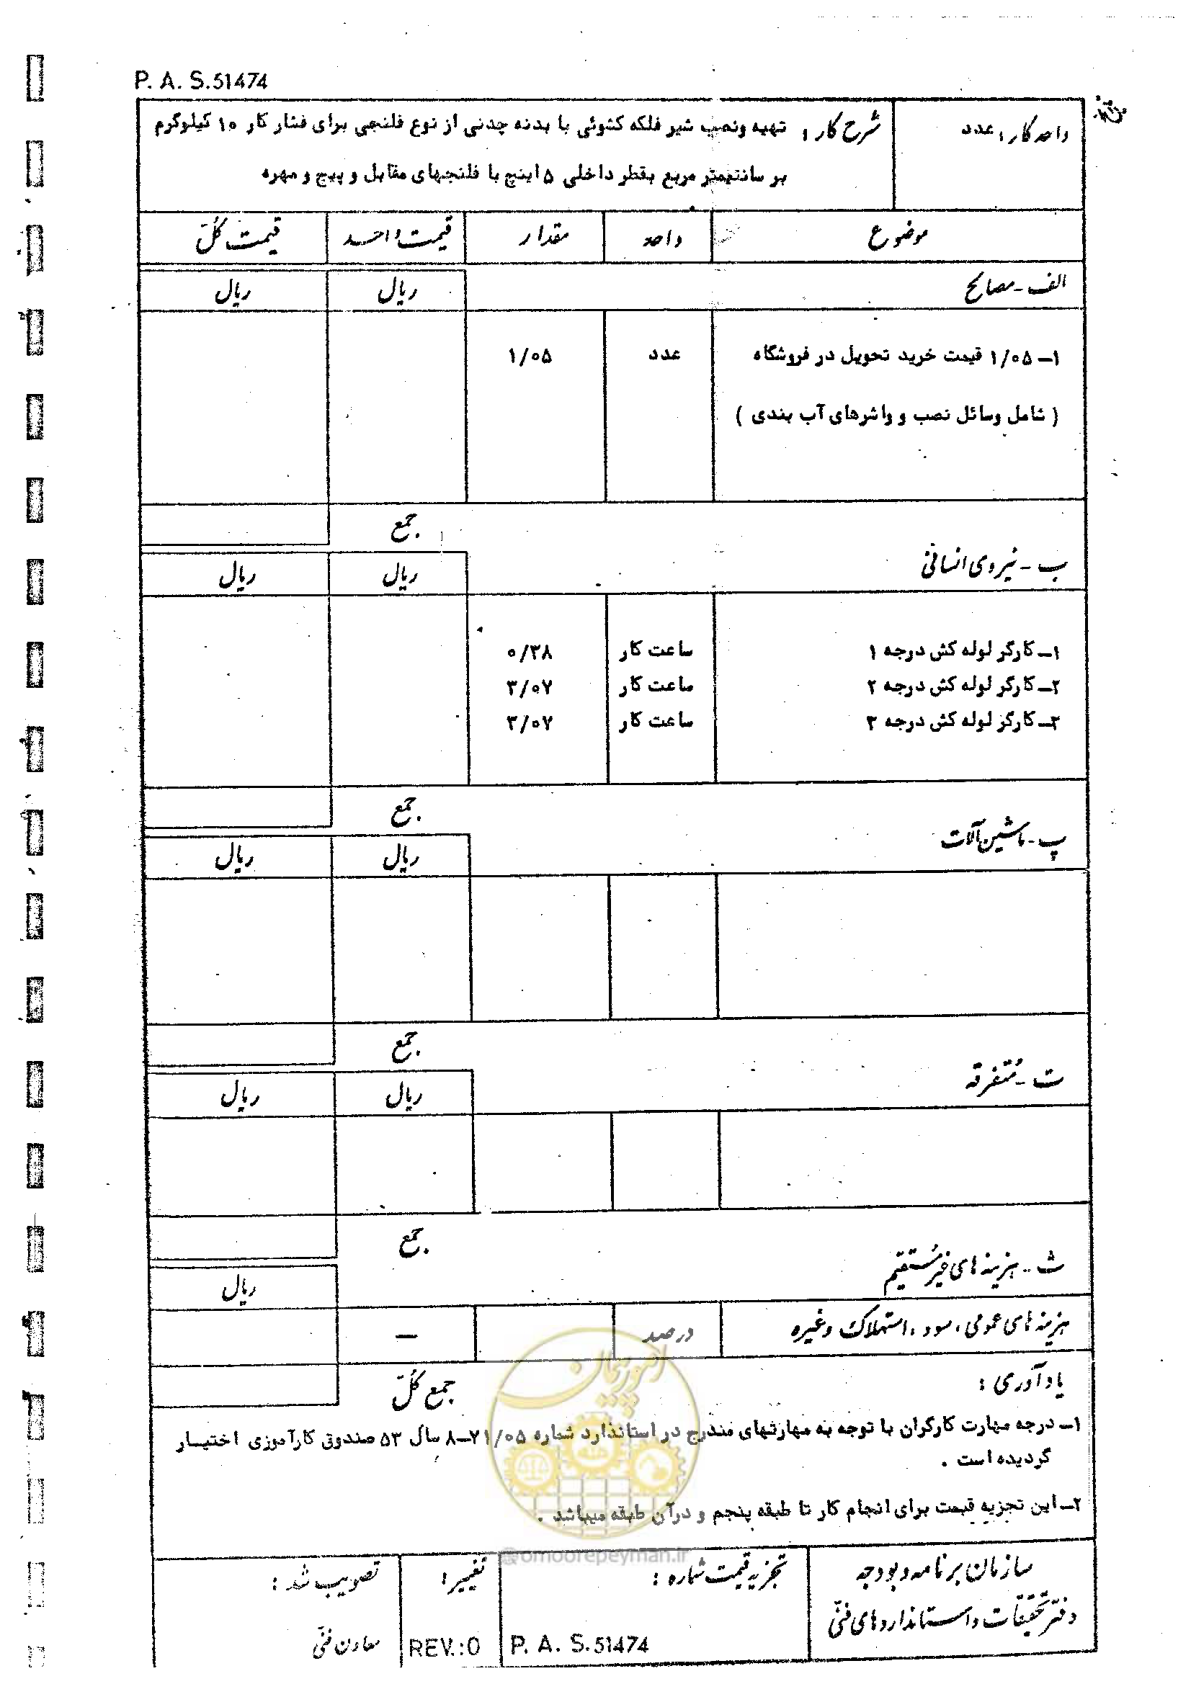 P. A. S.51474
واحد کار : عدد
شرح کار : تهیه ونصب شیر فلکه کشوئی با بدنه چدنی از نوع فلنجی برای فشار کار ۱۰ کیلوگرم
بر سانتیمتر مربع بقطر داخلی ۵ اینچ با فلنجهای مقابل و پیچ و مهره
موضوع واحد مقدار قیمت واحد قیمت کلّ
الف - مصالح ریال ریال
۱ـ ۱/۰۵ قیمت خرید تحویل در فروشگاه عدد ۱/۰۵
( شامل وسائل نصب و واشرهای آب بندی )
جمع
ب - نیروی انسانی ریال ریال
۱ـ کارگر لوله کش درجه ۱ ساعت کار ۰/۳۸
۲ـ کارگر لوله کش درجه ۲ ساعت کار ۳/۰۷
۳ـ کارگر لوله کش درجه ۳ ساعت کار ۳/۰۷
جمع
پ - ماشین آلات ریال ریال
جمع
ت - متفرقه ریال ریال
جمع
ث - هزینه های غیر مستقیم ریال
هزینه های عمومی ، سود ، استهلاک وغیره درصد —
جمع کلّ
یادآوری :
۱ـ درجه مهارت کارگران با توجه به مهارتهای مندرج در استاندارد شماره ۲۱/۰۵–۸ سال ۵۳ صندوق کارآموزی اختیار
گردیده است .
۲ـ این تجزیه قیمت برای انجام کار تا طبقه پنجم و درآن طبقه میباشد .
امور پیمان
@omoorepeyman.ir
سازمان برنامه وبودجه
دفتر تحقیقات واستانداردهای فنّی
تجزیه قیمت شماره :
P. A. S.51474
تغییر :
REV.:0
تصویب شد :
معاون فنّی